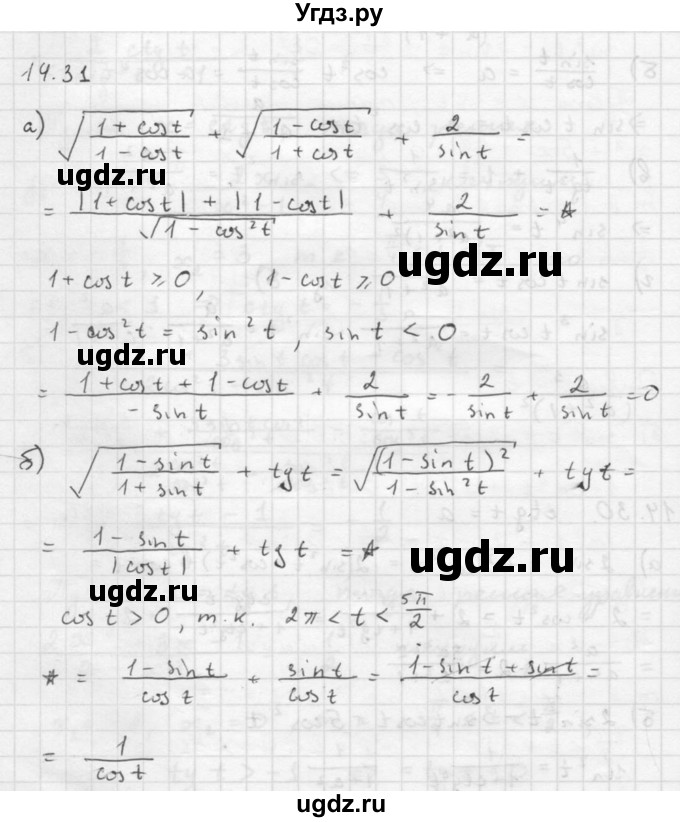 Угдз.ру
14.31
а) √((1 + cos t)/(1 − cos t)) + √((1 − cos t)/(1 + cos t)) + 2/sin t =
ugdz.ru
= (|1 + cos t| + |1 − cos t|)/√(1 − cos²t) + 2/sin t = *
ugdz.ru
1 + cos t ⩾ 0, 1 − cos t ⩾ 0
1 − cos²t = sin²t, sin t < 0
ugdz.ru
= (1 + cos t + 1 − cos t)/(− sin t) + 2/sin t = − 2/sin t + 2/sin t = 0
б) √((1 − sin t)/(1 + sin t)) + tg t = √((1 − sin t)²/(1 − sin²t)) + tg t =
= (1 − sin t)/|cos t| + tg t = *
ugdz.ru
ugdz.ru
cos t > 0, т.к. 2π < t < 5π/2
* = (1 − sin t)/cos t + sin t/cos t = (1 − sin t + sin t)/cos t =
= 1/cos t
ugdz.ru